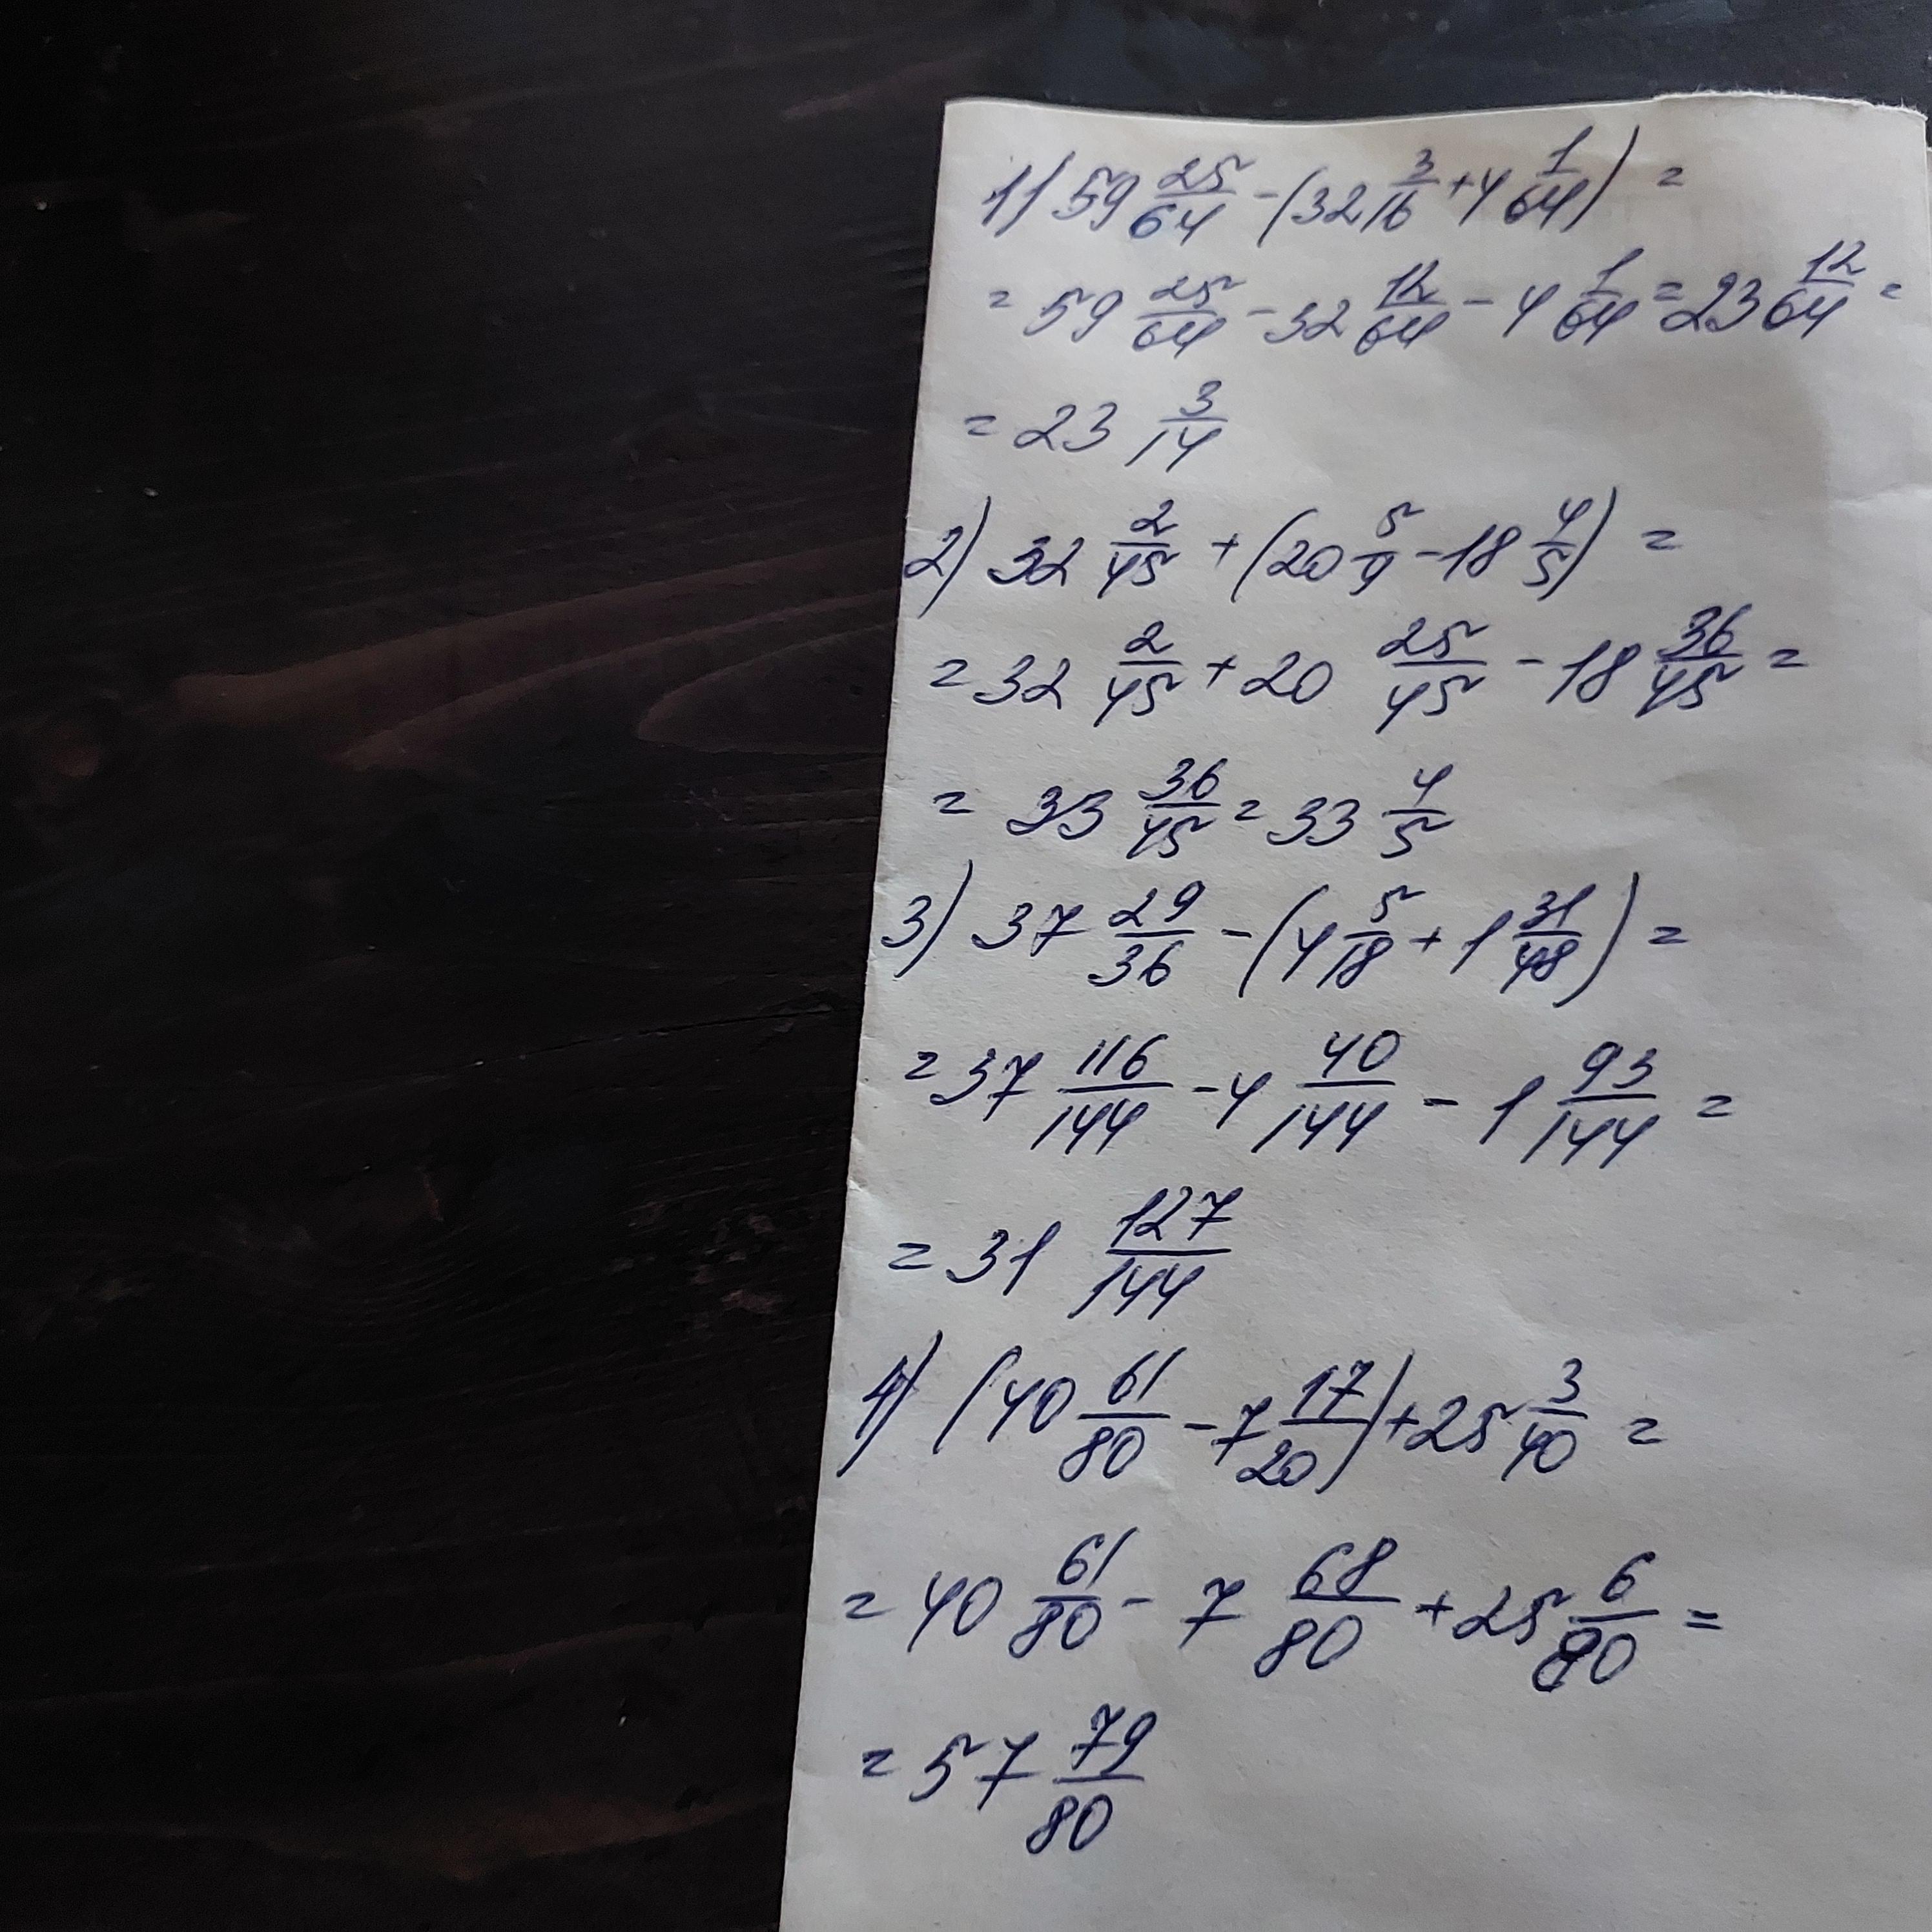 1) 59 25/64 - (32 3/16 + 4 1/64) =
= 59 25/64 - 32 12/64 - 4 1/64 = 23 12/64 =
= 23 3/14
2) 32 2/45 + (20 5/9 - 18 4/5) =
= 32 2/45 + 20 25/45 - 18 36/45 =
= 33 36/45 = 33 4/5
3) 37 29/36 - (4 5/18 + 1 31/48) =
= 37 116/144 - 4 40/144 - 1 93/144 =
= 31 127/144
4) (40 61/80 - 7 17/20) + 25 3/40 =
= 40 61/80 - 7 68/80 + 25 6/80 =
= 57 79/80